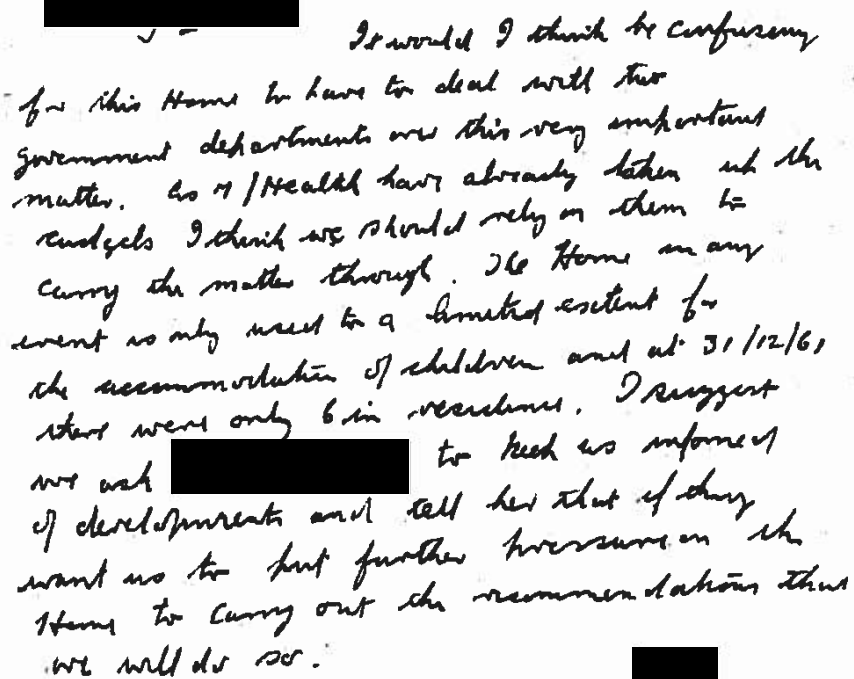 It would I think be confusing
for this Home to have to deal with two
government departments over this very important
matter. As M/Health have already taken up the
cudgels I think we should rely on them to
carry the matter through. The Home in any
event is only used to a limited extent for
the accommodation of children and at 31/12/61
there were only 6 in residence. I suggest
we ask to keep us informed
of developments and tell her that if they
want us to put further pressure on the
Home to carry out the recommendations that
we will do so.